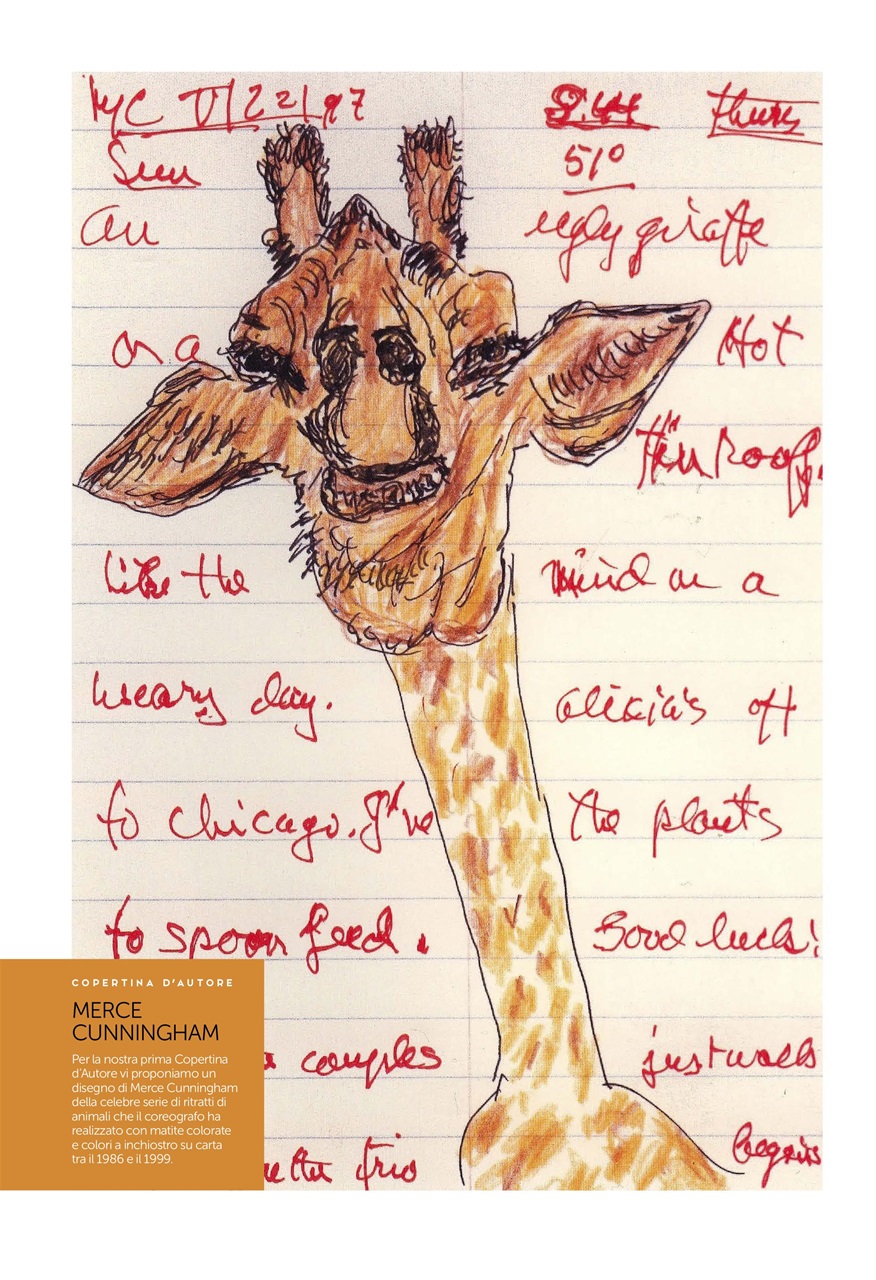 NYC V/22/97 9.44 Thurs
Sun 51°
an ugly giraffe
on a Hot
thin Roof,
like the mind on a
weary day. Alicia's off
to chicago. I've the plants
to spoon feed. Good luck!
couples just walk
trio begins
COPERTINA D'AUTORE
MERCE
CUNNINGHAM
Per la nostra prima Copertina
d'Autore vi proponiamo un
disegno di Merce Cunningham
della celebre serie di ritratti di
animali che il coreografo ha
realizzato con matite colorate
e colori a inchiostro su carta
tra il 1986 e il 1999.